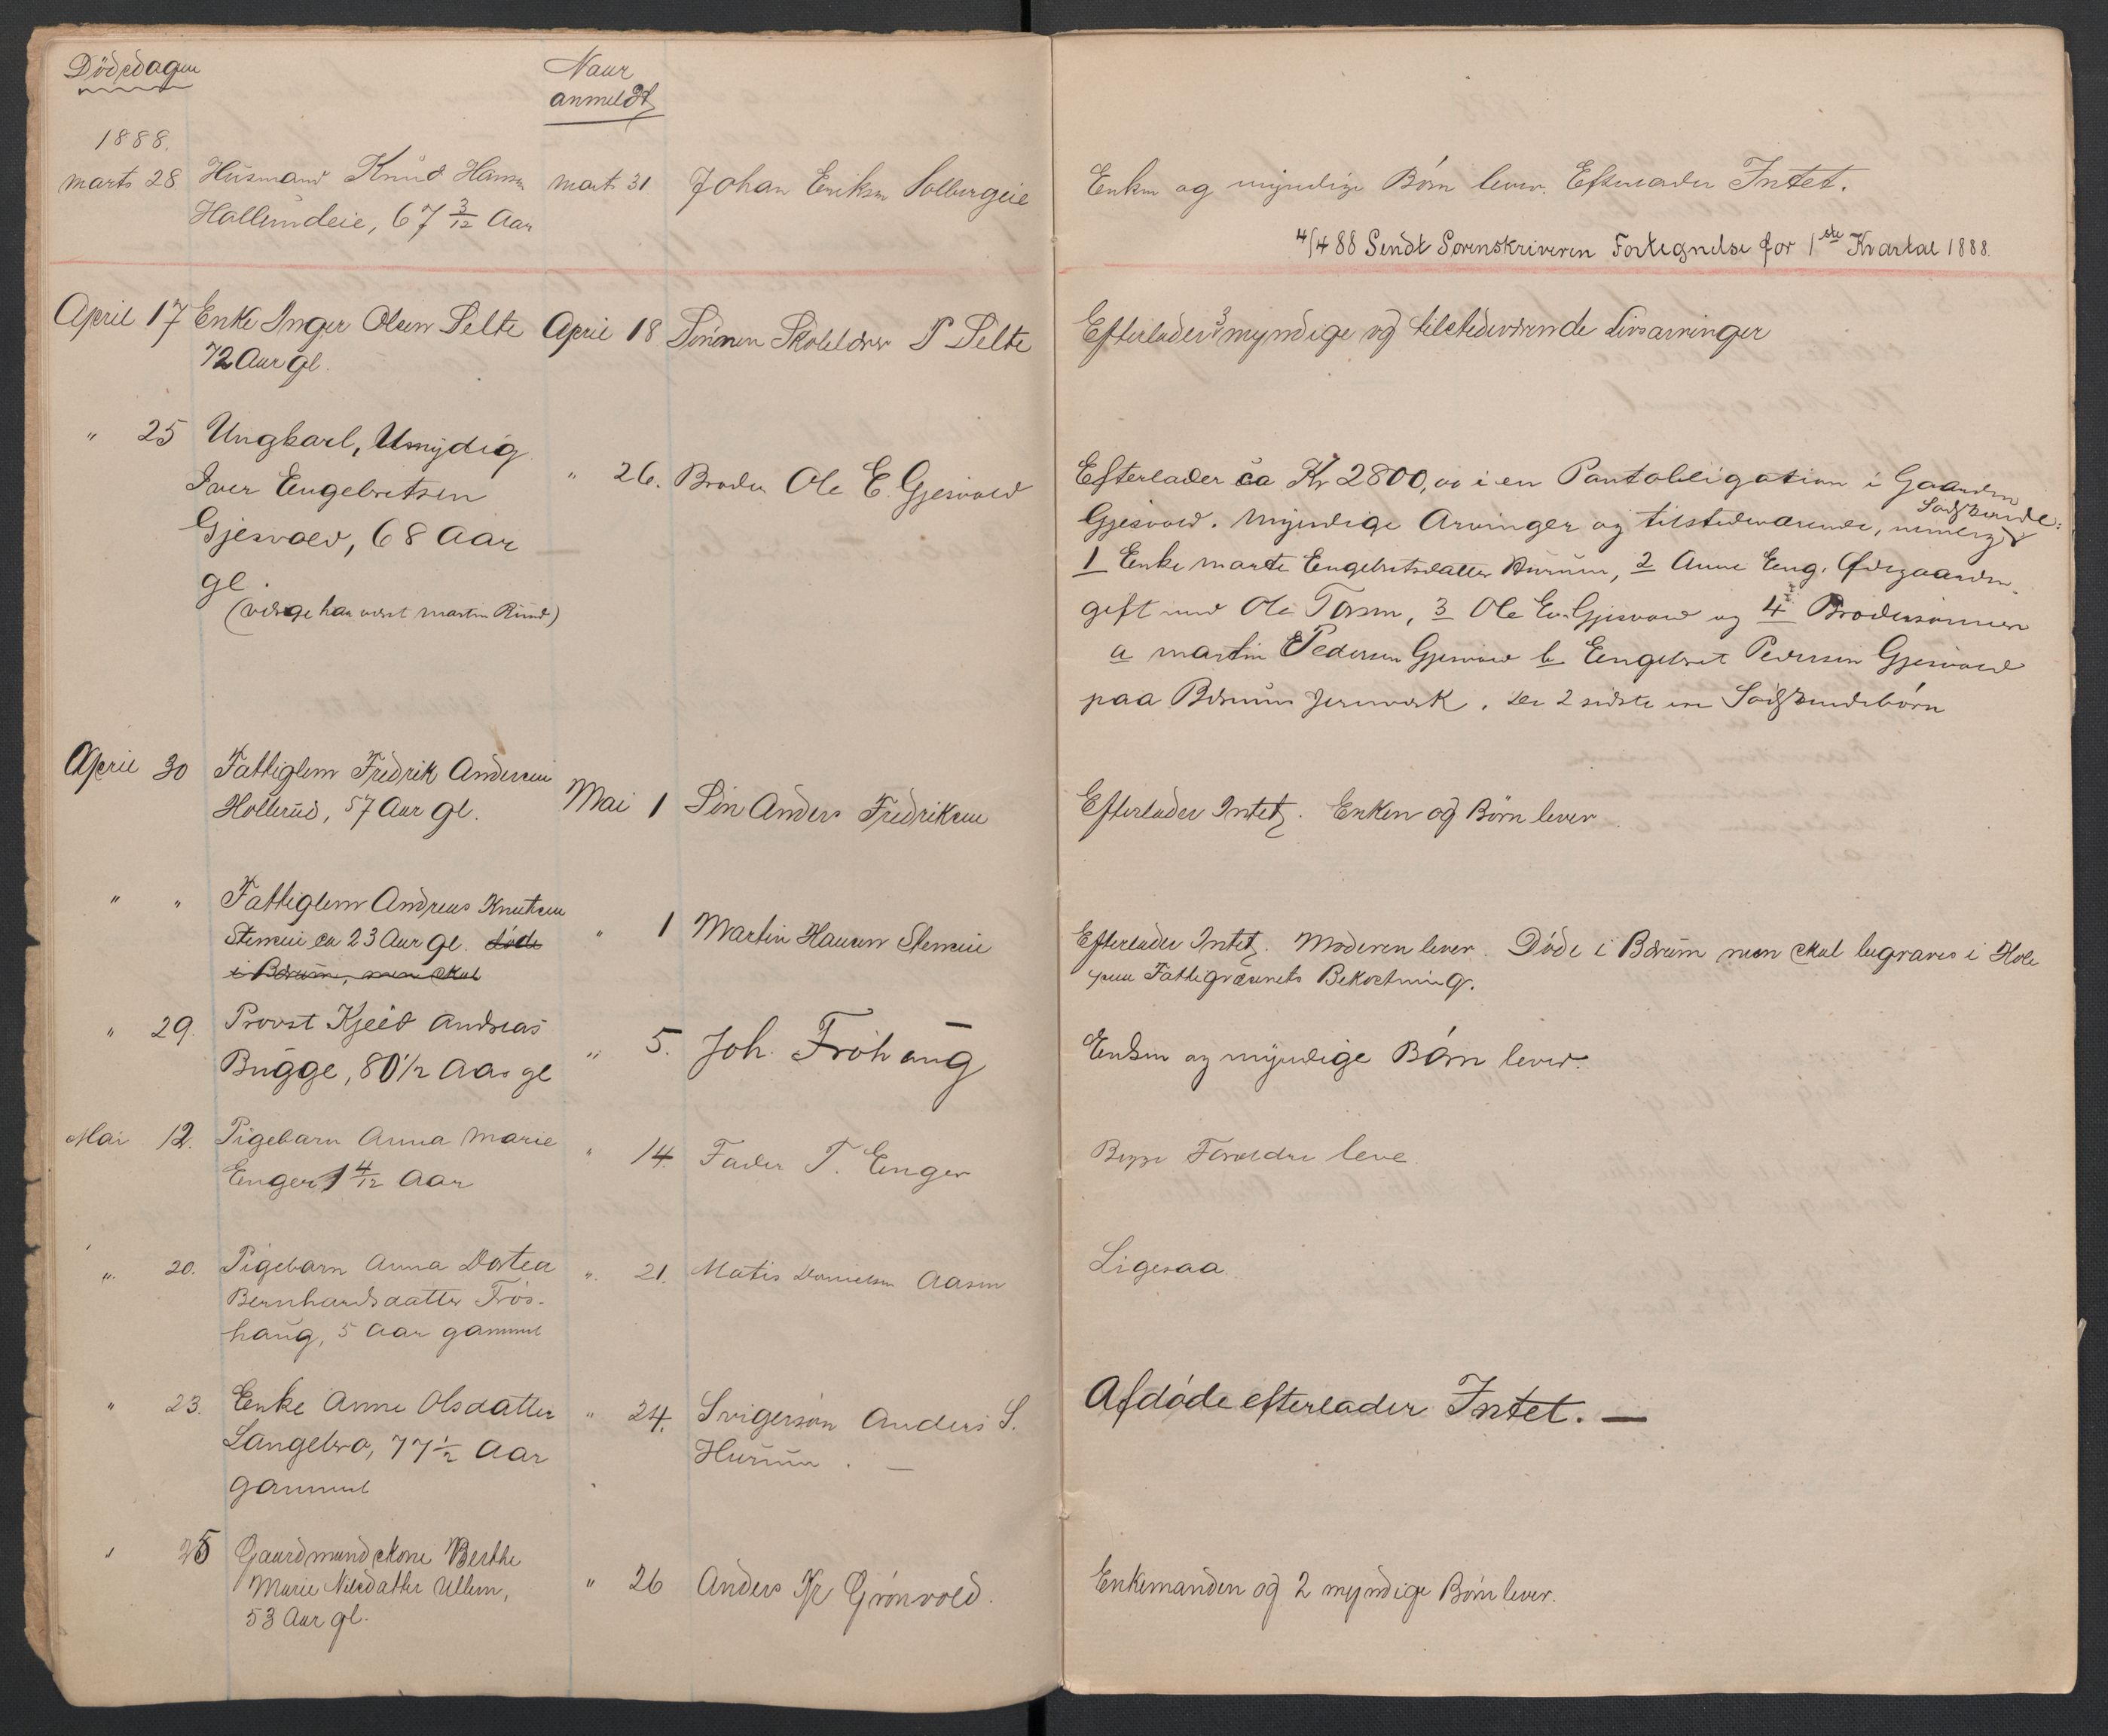 Dödsdagen
Naar
anmeldt
1888.
Marts 28 Husmand Knud Hansen
Hallumdeie, 67 3/12 Aar
Marts 31 Johan Eriksen
Enken og myndige Börn lever. Efterlader Intet.
4/4 88 Sendt Sorenskriveren Fortegnelse for 1ste Kvartal 1888.
April 17 Enke Inger Olsen Selte
72 Aar gl.
April 18 Sönnen Skolelærer P Selte
Efterlader 3 myndige og tilstedeværende Livsarvinger
" 25 Ungkarl, Umydig
Iver Engebretsen
Gjesvold, 68 Aar
gl.
(værge har været Martin Rund)
" 26. Broder Ole E. Gjesvold
Efterlader ca Kr 2800,00 i en Pantobligation i Gaarden
Gjesvold. Myndige Arvinger og tilstedeværende, nemlig Södskende:
1 Enke Marte Engebretsdatter, 2 Anne Eng. Ødegaarden
gift med Ole Torsen, 3 Ole E. Gjesvold og 4 Brodersönner
a Martin Pedersen Gjesvold b Engebret Pedersen Gjesvold
paa Bærums Jernværk. De 2 sidste ere Södskendebörn
April 30 Fattiglem Fredrik Andersen
Hollerud, 57 Aar gl.
Mai 1 Sön Anders Fredriksen
Efterlader Intet. Enken og Börn lever
" " Fattiglem Andreas Knutsen
Stemeie ca 23 Aar gl. döde
i Bærum, men skal
" 1 Martin Hansen Stemeie
Efterlader Intet. Moderen lever. Döde i Bærum men skal begraves i Hole
paa Fattigvæsenets Bekostning.
" 29. Provst Kjeld Andreas
Bugge, 80 1/2 Aar gl
" 5. Joh. Fröhaug
Enken og myndige Börn lever.
Mai 12. Pigebarn Anna Marie
Enger 1 4/12 Aar
" 14. Fader T. Enger
Begge Forældre leve.
" 20. Pigebarn Anna Dortea
Bernhardsdatter Frös-
haug, 5 Aar gammel
" 21. Matis Danielsen Aasen
Ligesaa.
" 23. Enke Anne Olsdatter
Langebro, 77 1/2 Aar
gammel
" 24. Svigersön Anders S.
Hurum. —
Afdöde efterlader Intet. —
" 25 Gaardmandskone Berthe
Marie Nilsdatter Ullern,
53 Aar gl.
" 26 Anders Kr Grönvold.
Enkemanden og 2 myndige Börn lever.